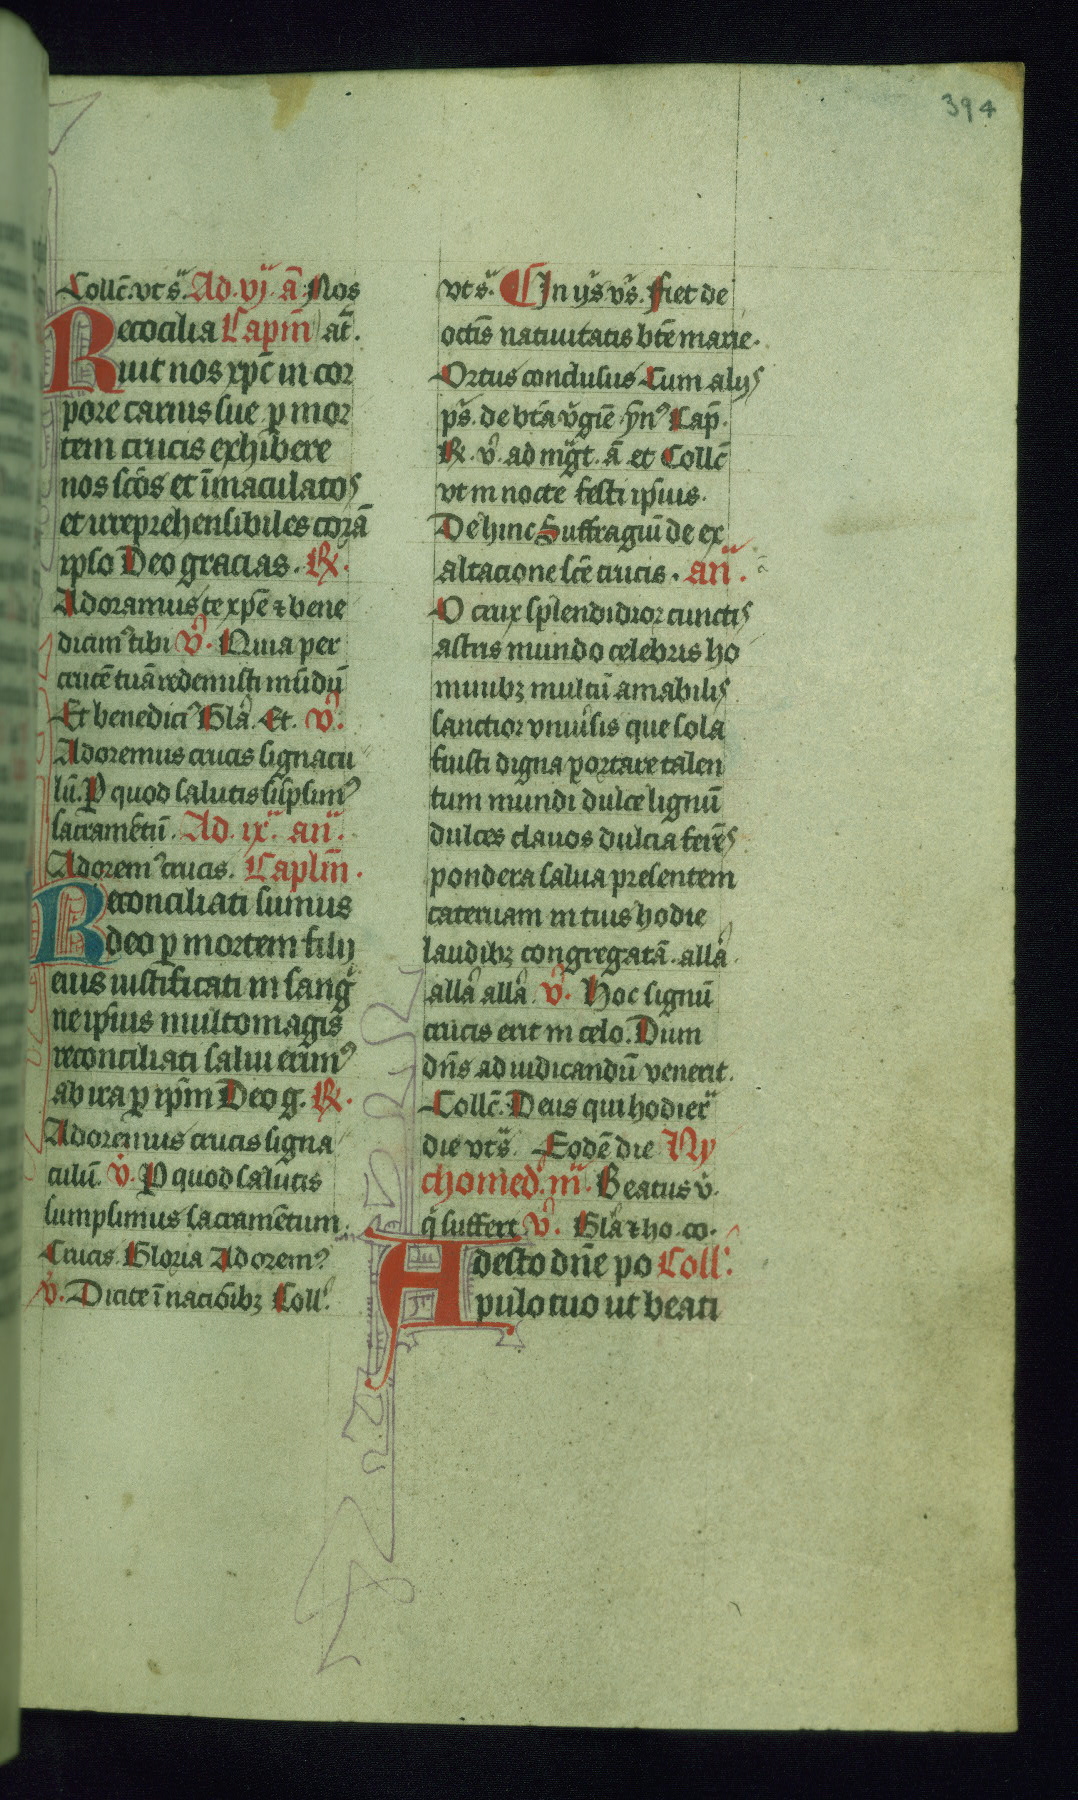 394
Collc̄. vt sᷓ. Ad. vj. ā Nos
Recōcilia Capłm at̄.
uit nos xp̄c in cor
pore carnis sue p mor
tem crucis exhibere
nos sc̄os et īmaculatos
et irreprehensibiles corā
ipso Deo gracias. R̸.
Adoramus te xp̄e ⁊ bene
dicimꝰ tibi V̊. Quia per
crucē tuā redemisti mūdū
Et benedicꝰ Glā. Et. V̊.
Adoremus crucis signacu
lū. P quod salutis sūpsimꝰ
sacramētū. Ad. ix. an̄.
Adoremꝰ crucis. Caplm̄.
Reconciliati sumus
deo p mortem filij
eius iustificati in sang
ne ipsius multomagis
reconciliati salui erimꝰ
ab ira p ip̄m Deo g. R̸.
Adoremus crucis signa
culū. v̊. P quod salutis
sumpsimus sacramētum.
Crucis. Gloria Adoremꝰ
v̊. Dicite ī nacōibꝫ Coll.
vt sᷓ. In ijs vs̄. fiet de
octīs natiuitatis bt̄e marie.
Ortus conclusus Cum alijs
ps̄. de bt̄a v̊gīe ynꝰ Cap̄.
R̸. v̊. ad mḡt. ā et Collc̄
vt in nocte festi ipsius.
Dehinc Suffragiū de ex
altacione sc̄e crucis. an̄.
O crux splendidior cunctis
astris mundo celebris ho
minibꝫ multū amabilis
sanctior vniūsis que sola
fuisti digna portare talen
tum mundi dulce lignū
dulces clauos dulcia ferēs
pondera salua presentem
cateruam in tuis hodie
laudibꝫ congregatā. allā
allā allā. V̊. Hoc signū
crucis erit in celo. Dum
dn̄s ad iudicandū venerit.
Collc̄. Deus qui hodier̄
die vt sᷓ. Eodē die Ny
chomed. m̄. Beatus v̊.
q̄ suffert V̊. Glā ⁊ ho. co.
Adesto dn̄e po Coll.
pulo tuo ut beati